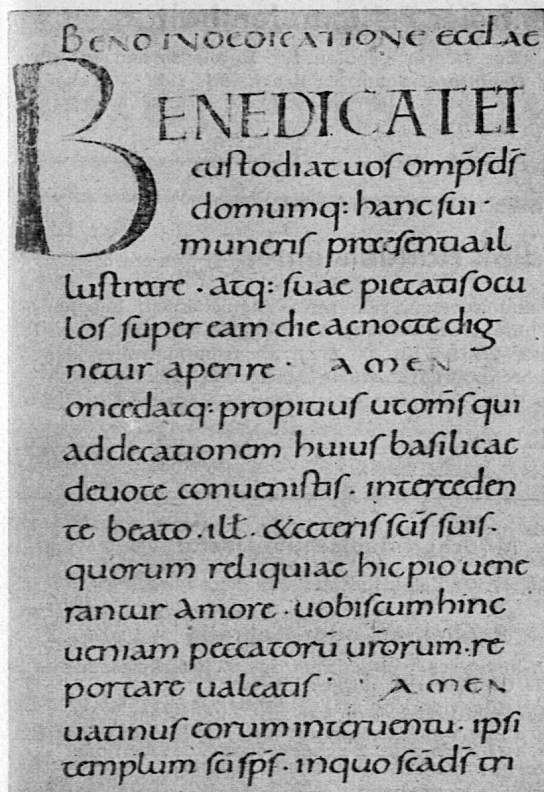 BENO IN DEDICATIONE ECCLAE
BENEDICAT ET
custodiat uos omps ds
domumq: hanc sui ·
muneris praesentia il
lustrare · atq: suae pietatis ocu
los super eam die ac nocte dig
netur aperire · AMEN
oncedatq: propitius ut oms qui
ad decationem huius basilicae
deuote conuenistis. interceden
te beato .ill. & ceteris scis suis.
quorum reliquiae hic pio uene
rantur amore · uobiscum hinc
ueniam peccatorū urorum. re
portare ualeatis · · AMEN
uatinus eorum interuentu · ipsi
templum sci sps. in quo scā ds tri